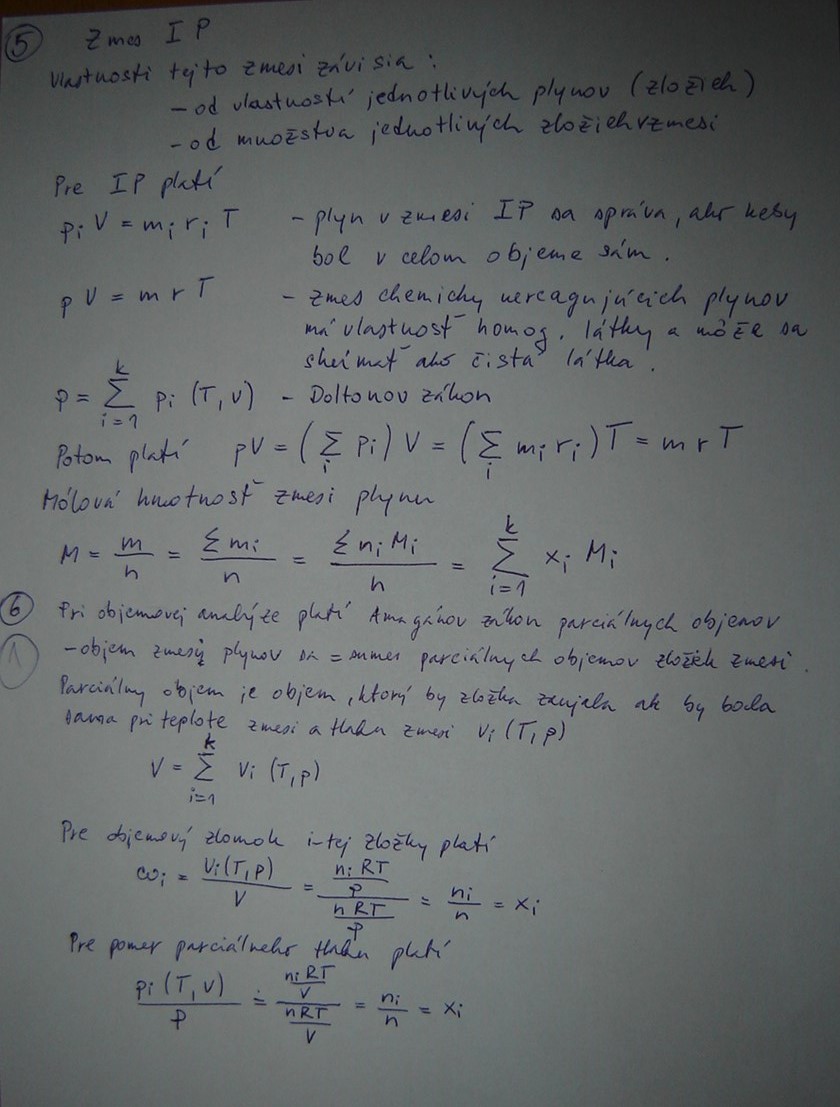 5 Zmes IP
Vlastnosti tejto zmesi závisia:
- od vlastností jednotlivých plynov (zložiek)
- od množstva jednotlivých zložiek v zmesi
Pre IP platí
pi V = mi ri T - plyn v zmesi IP sa správa, ako keby
bol v celom objeme sám.
p V = m r T - zmes chemicky nereagujúcich plynov
má vlastnosť homog. látky a môže sa
skúmať ako čistá látka.
p = Σ_{i=1}^{k} pi (T, V) - Doltonov zákon
Potom platí pV = (Σ_i pi) V = (Σ_i mi ri) T = m r T
Mólová hmotnosť zmesi plynu
M = m/n = Σ mi / n = Σ ni Mi / n = Σ_{i=1}^{k} xi Mi
6 Pri objemovej analýze platí Amagánov zákon parciálnych objemov
1 - objem zmesi plynov sa = sume parciálnych objemov zložiek zmesi.
Parciálny objem je objem, ktorý by zložka zaujala ak by bola
sama pri teplote zmesi a tlaku zmesi Vi (T, p)
V = Σ_{i=1}^{k} Vi (T, p)
Pre objemový zlomok i-tej zložky platí
ωi = Vi(T, p) / V = (ni RT / p) / (n RT / p) = ni / n = xi
Pre pomer parciálneho tlaku platí
pi (T, V) / p = (ni RT / V) / (n RT / V) = ni / n = xi